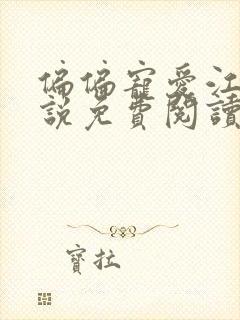 偏偏寵愛江
說免費閱讀
寶拉